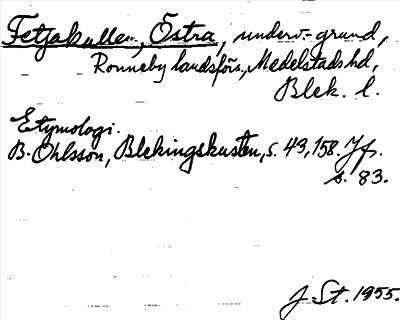 Fetjakullen, Östra, underv.-grund,
Ronneby landsförs., Medelstads hd,
Blek. l.
Etymologi.
B. Ohlsson, Blekingskusten, s. 49, 158. Jfr.
s. 83.
J. St. 1955.